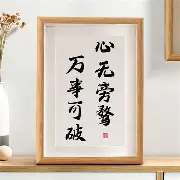 心无旁骛
万事可破